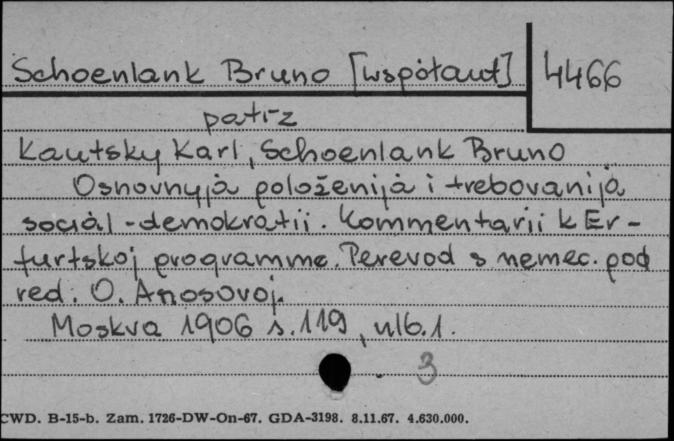 Schoenlank Bruno [współaut]
4466
patrz
Kautsky Karl, Schoenlank Bruno
Osnovnyjà položenijà i trebovanijà
sociàl-demokratii. Kommentarii k Er-
furtskoj programme. Perevod s nemec. pod
red. O. Anosovoj.
Moskva 1906 s. 119, nlb. 1.
3
CWD. B-15-b. Zam. 1726-DW-On-67. GDA-3198. 8.11.67. 4.630.000.